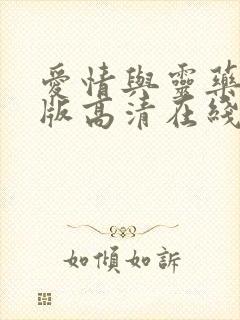 愛情與靈藥
版高清在綫
如傾如訴